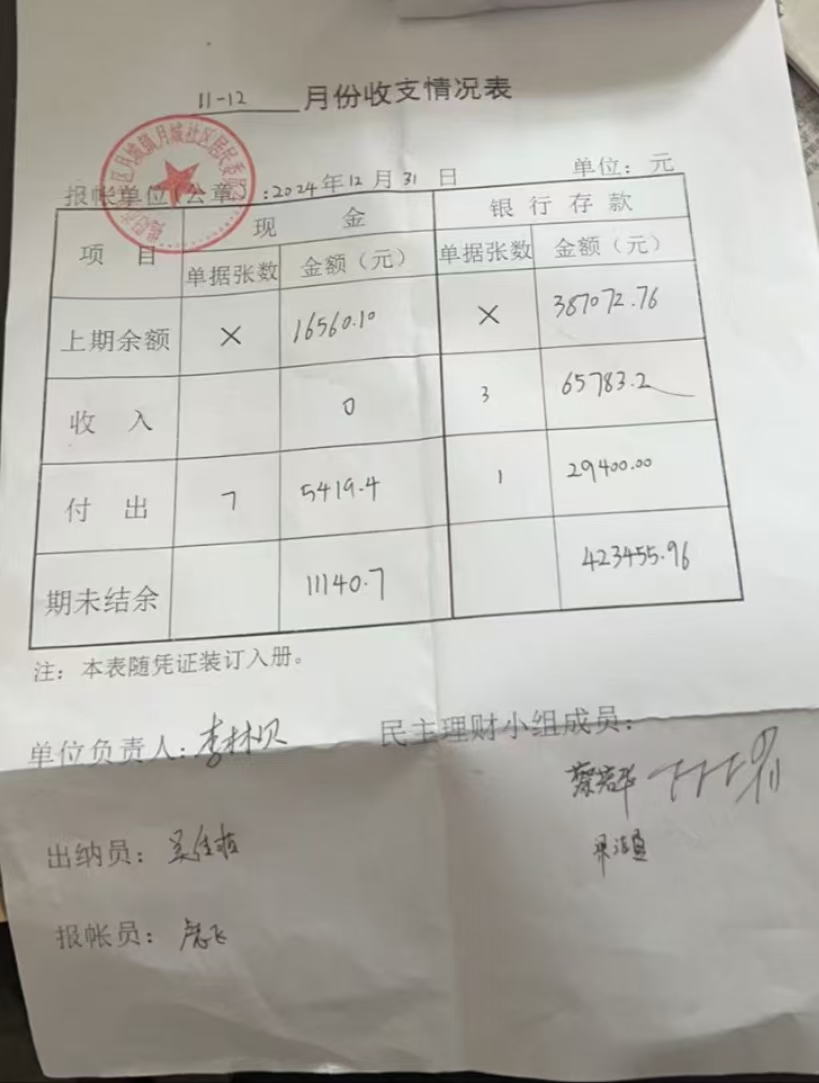 11-12 月份收支情况表
月城镇月城社区居民委员
报帐单位(公章):2024年12月31日 单位:元
项目 现金 银行存款
单据张数 金额(元) 单据张数 金额(元)
上期余额 × 16560.10 × 387072.76
收入 0 3 65783.2
付出 7 5419.4 1 29400.00
期未结余 11140.7 423455.96
注:本表随凭证装订入册。
单位负责人: 民主理财小组成员:
出纳员:
报帐员: